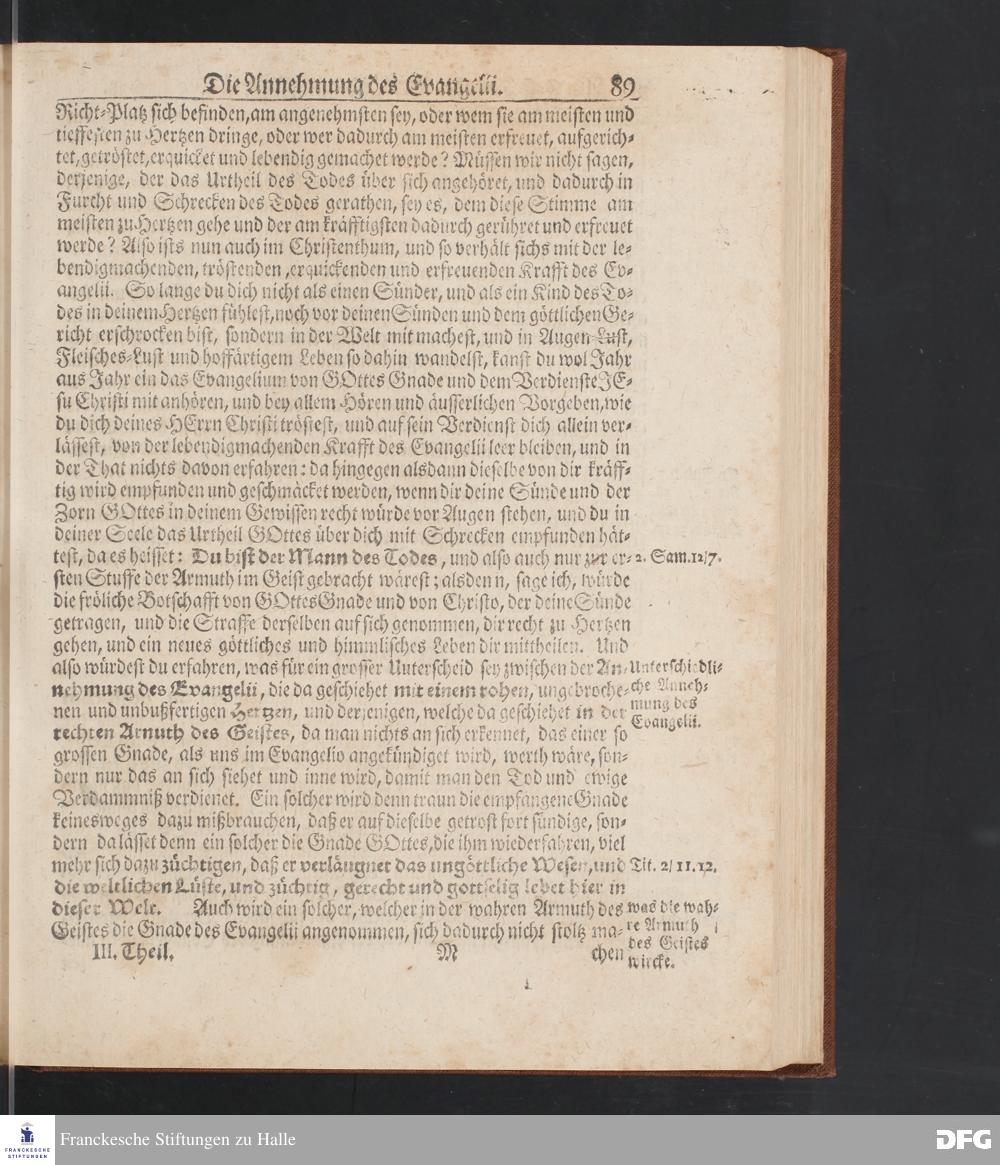 Die Annehmung des Evangelii. 89
Richt-Platz sich befinden, am angenehmsten sey, oder wem sie am meisten und
tieffesten zu Hertzen dringe, oder wer dadurch am meisten erfreuet, aufgerich-
tet, getröstet, erquicket und lebendig gemachet werde? Müssen wir nicht sagen,
derjenige, der das Urtheil des Todes über sich angehöret, und dadurch in
Furcht und Schrecken des Todes gerathen, sey es, dem diese Stimme am
meisten zu Hertzen gehe und der am kräfftigsten dadurch gerühret und erfreuet
werde? Also ists nun auch im Christenthum, und so verhält sichs mit der le-
bendigmachenden, tröstenden, erquickenden und erfreuenden Krafft des Ev-
angelii. So lange du dich nicht als einen Sünder, und als ein Kind des To-
des in deinem Hertzen fühlest, noch vor deinen Sünden und dem göttlichen Ge-
richt erschrocken bist, sondern in der Welt mit machest, und in Augen-Lust,
Fleisches-Lust und hoffärtigem Leben so dahin wandelst, kanst du wol Jahr
aus Jahr ein das Evangelium von GOttes Gnade und dem Verdienste JE-
su Christi mit anhören, und bey allem Hören und äusserlichen Vorgeben, wie
du dich deines HErrn Christi tröstest, und auf sein Verdienst dich allein ver-
lässest, von der lebendigmachenden Krafft des Evangelii leer bleiben, und in
der That nichts davon erfahren: da hingegen alsdann dieselbe von dir kräff-
tig wird empfunden und geschmäcket werden, wenn dir deine Sünde und der
Zorn GOttes in deinem Gewissen recht würde vor Augen stehen, und du in
deiner Seele das Urtheil GOttes über dich mit Schrecken empfunden hät-
test, da es heisset: Du bist der Mann des Todes, und also auch nur zur er-
2. Sam. 12/7.
sten Stuffe der Armuth im Geist gebracht wärest; alsdenn, sage ich, würde
die fröliche Botschafft von GOttes Gnade und von Christo, der deine Sünde
getragen, und die Straffe derselben auf sich genommen, dir recht zu Hertzen
gehen, und ein neues göttliches und himmlisches Leben dir mittheilen. Und
also würdest du erfahren, was für ein grosser Unterscheid sey zwischen der An-
nehmung des Evangelii, die da geschiehet mit einem rohen, ungebroche-
nen und unbußfertigen Hertzen, und derjenigen, welche da geschiehet in der
rechten Armuth des Geistes, da man nichts an sich erkennet, das einer so
Unterschiedli-
che Anneh-
mung des
Evangelii.
grossen Gnade, als uns im Evangelio angekündiget wird, werth wäre, son-
dern nur das an sich siehet und inne wird, damit man den Tod und ewige
Verdammniß verdienet. Ein solcher wird denn traun die empfangene Gnade
keinesweges dazu mißbrauchen, daß er auf dieselbe getrost fort sündige, son-
dern da lässet denn ein solcher die Gnade GOttes, die ihm wiederfahren, viel
mehr sich dazu züchtigen, daß er verläugnet das ungöttliche Wesen, und
Tit. 2/11.12.
die weltlichen Lüste, und züchtig, gerecht und gottselig lebet hier in
dieser Welt. Auch wird ein solcher, welcher in der wahren Armuth des
Geistes die Gnade des Evangelii angenommen, sich dadurch nicht stoltz ma-
was die wah-
re Armuth
des Geistes
wircke.
III. Theil. M chen
FRANCKESCHE
STIFTUNGEN
Franckesche Stiftungen zu Halle
DFG